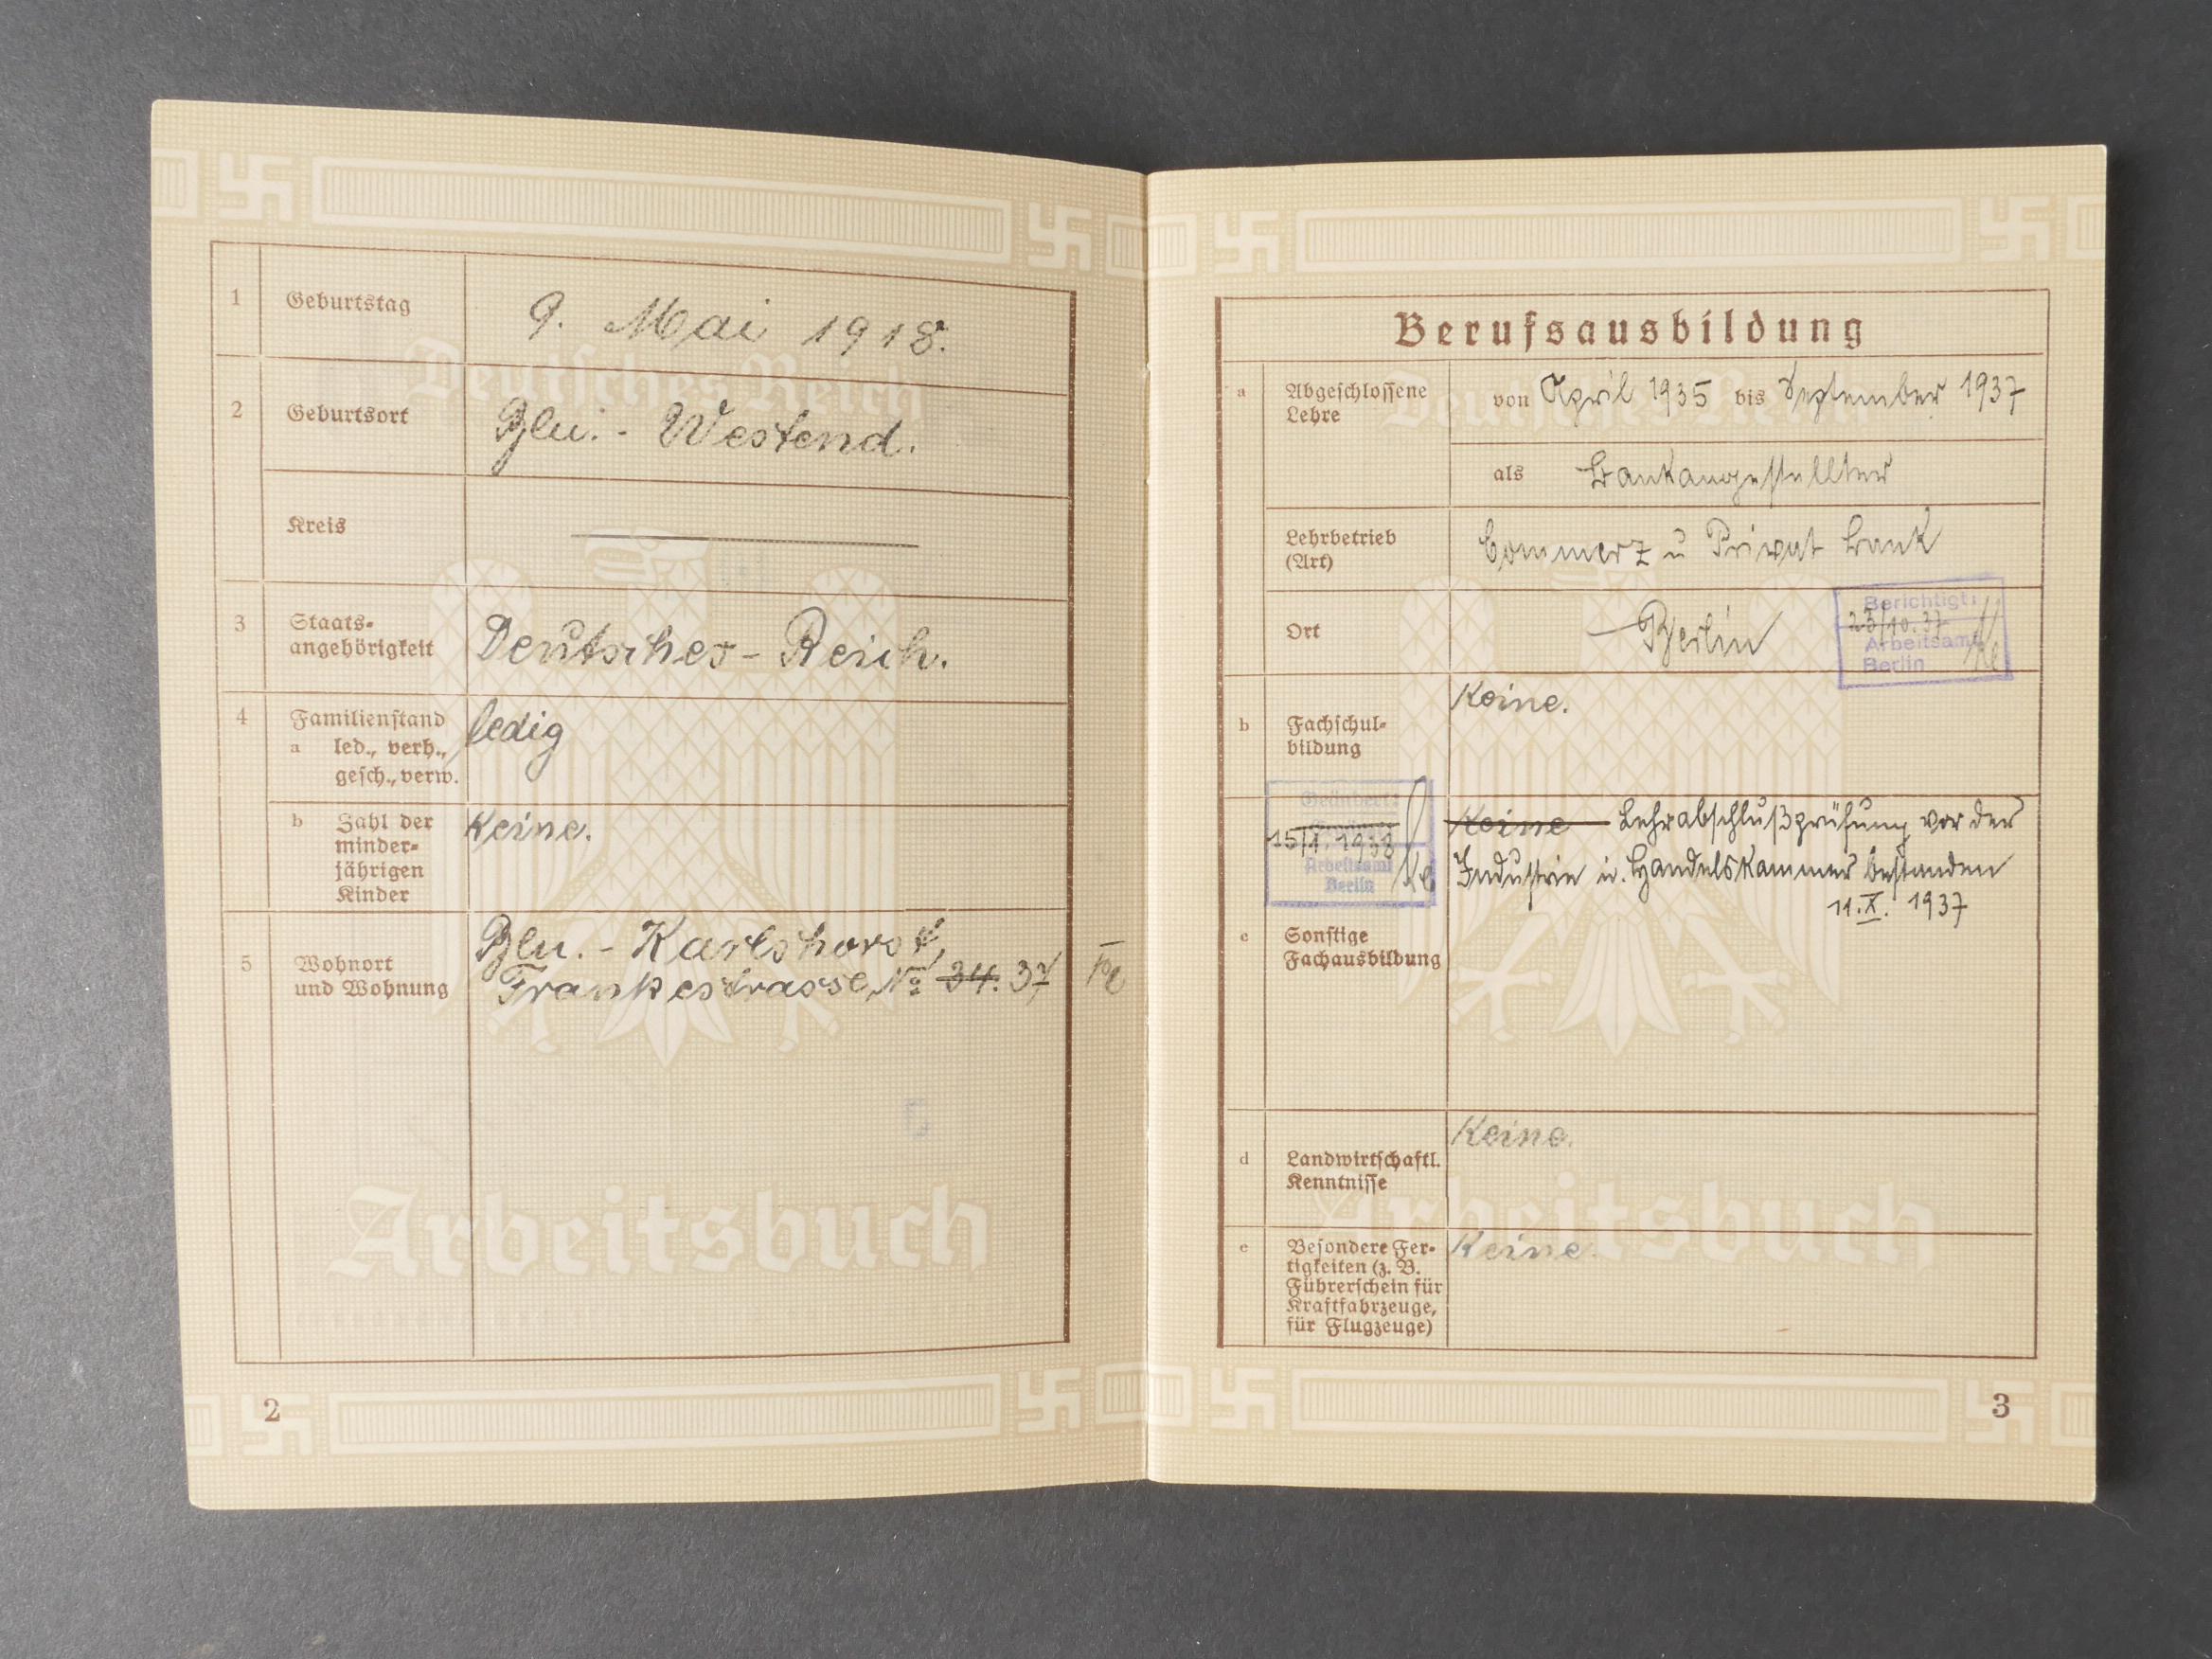 1 Geburtstag 9. Mai 1918.
Deutsches Reich
2 Geburtsort Bln.-Westend.
Kreis
3 Staats-
angehörigkeit Deutsches-Reich.
4 Familienstand ledig
a led., verh.,
gesch., verw.
b Zahl der Keine.
minder-
jährigen
Kinder
Bln.-Karlshorst,
5 Wohnort
und Wohnung Frankestrasse, No 34. 37
Arbeitsbuch
2
Berufsausbildung
Deutsches Reich
a Abgeschlossene
Lehre von April 1935 bis September 1937
als Bankangestellter
Lehrbetrieb
(Art) Commerz u Privat Bank
Ort Berlin
Berichtigt:
23/10.37
Arbeitsamt
Berlin
b Fachschul-
bildung Keine.
Geändert:
15/1. 1938
Arbeitsamt
Berlin
Keine Lehrabschlußprüfung vor der
Industrie u. Handelskammer bestanden
11.X. 1937
c Sonstige
Fachausbildung
d Landwirtschaftl. Keine.
Kenntnisse
Arbeitsbuch
e Besondere Fer- Keine.
tigkeiten (z. B.
Führerschein für
Kraftfahrzeuge,
für Flugzeuge)
3